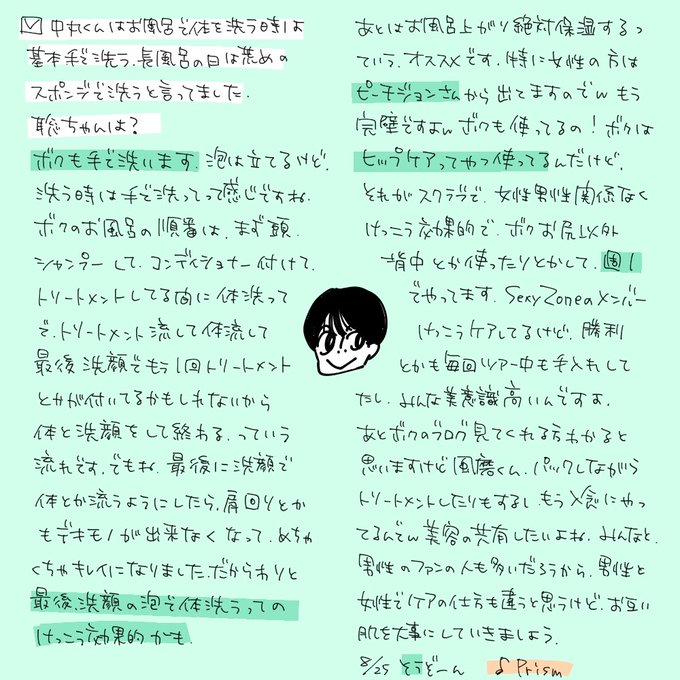 ☑ 中丸くんはお風呂で体を洗う時は
基本手で洗う、長風呂の日は荒めの
スポンジで洗うと言ってました。
聡ちゃんは?
ボクも手で洗います。泡は立てるけど、
洗う時は手で洗ってって感じですね。
ボクのお風呂の順番は、まず頭
シャンプーして、コンディショナー付けて、
トリートメントしてる間に体洗って
で、トリートメント流して体流して
最後洗顔でもう1回トリートメント
とかが付いてるかもしれないから
体と洗顔をして終わる、っていう
流れです。でもね、最後に洗顔で
体とか流すようにしたら、肩回りとか
もデキモノが出来なくなって、めちゃ
くちゃキレイになりました。だからわりと
最後、洗顔の泡で体洗うっての
けっこう効果的かも。
あとはお風呂上がり絶対保湿するっ
ていう、オススメです。特に女性の方は
ピーチジョンさんから出てますのでw もう
完璧ですよw ボクも使ってるの!ボクは
ヒップケアってやつ使ってるんだけど、
それがスクラブで、女性男性関係なく
けっこう効果的で、ボクお尻以外
背中とか使ったりとかして、週1
でやってます。Sexy Zoneのメンバー
けっこうケアしてるけど、勝利
とかも毎回ツアー中も手入れして
たし、みんな美意識高いんですよ。
あとボクのブログ見てくれる方わかると
思いますけど風磨くん、パックしながら
トリートメントしたりもするし、もう入念にやっ
てるんでw 美容の共有したいよね、みんなと。
男性のファンの人も多いだろうから、男性と
女性でケアの仕方も違うと思うけど、お互い
肌を大事にしていきましょう。
8/25 そうどーん ♪Prism